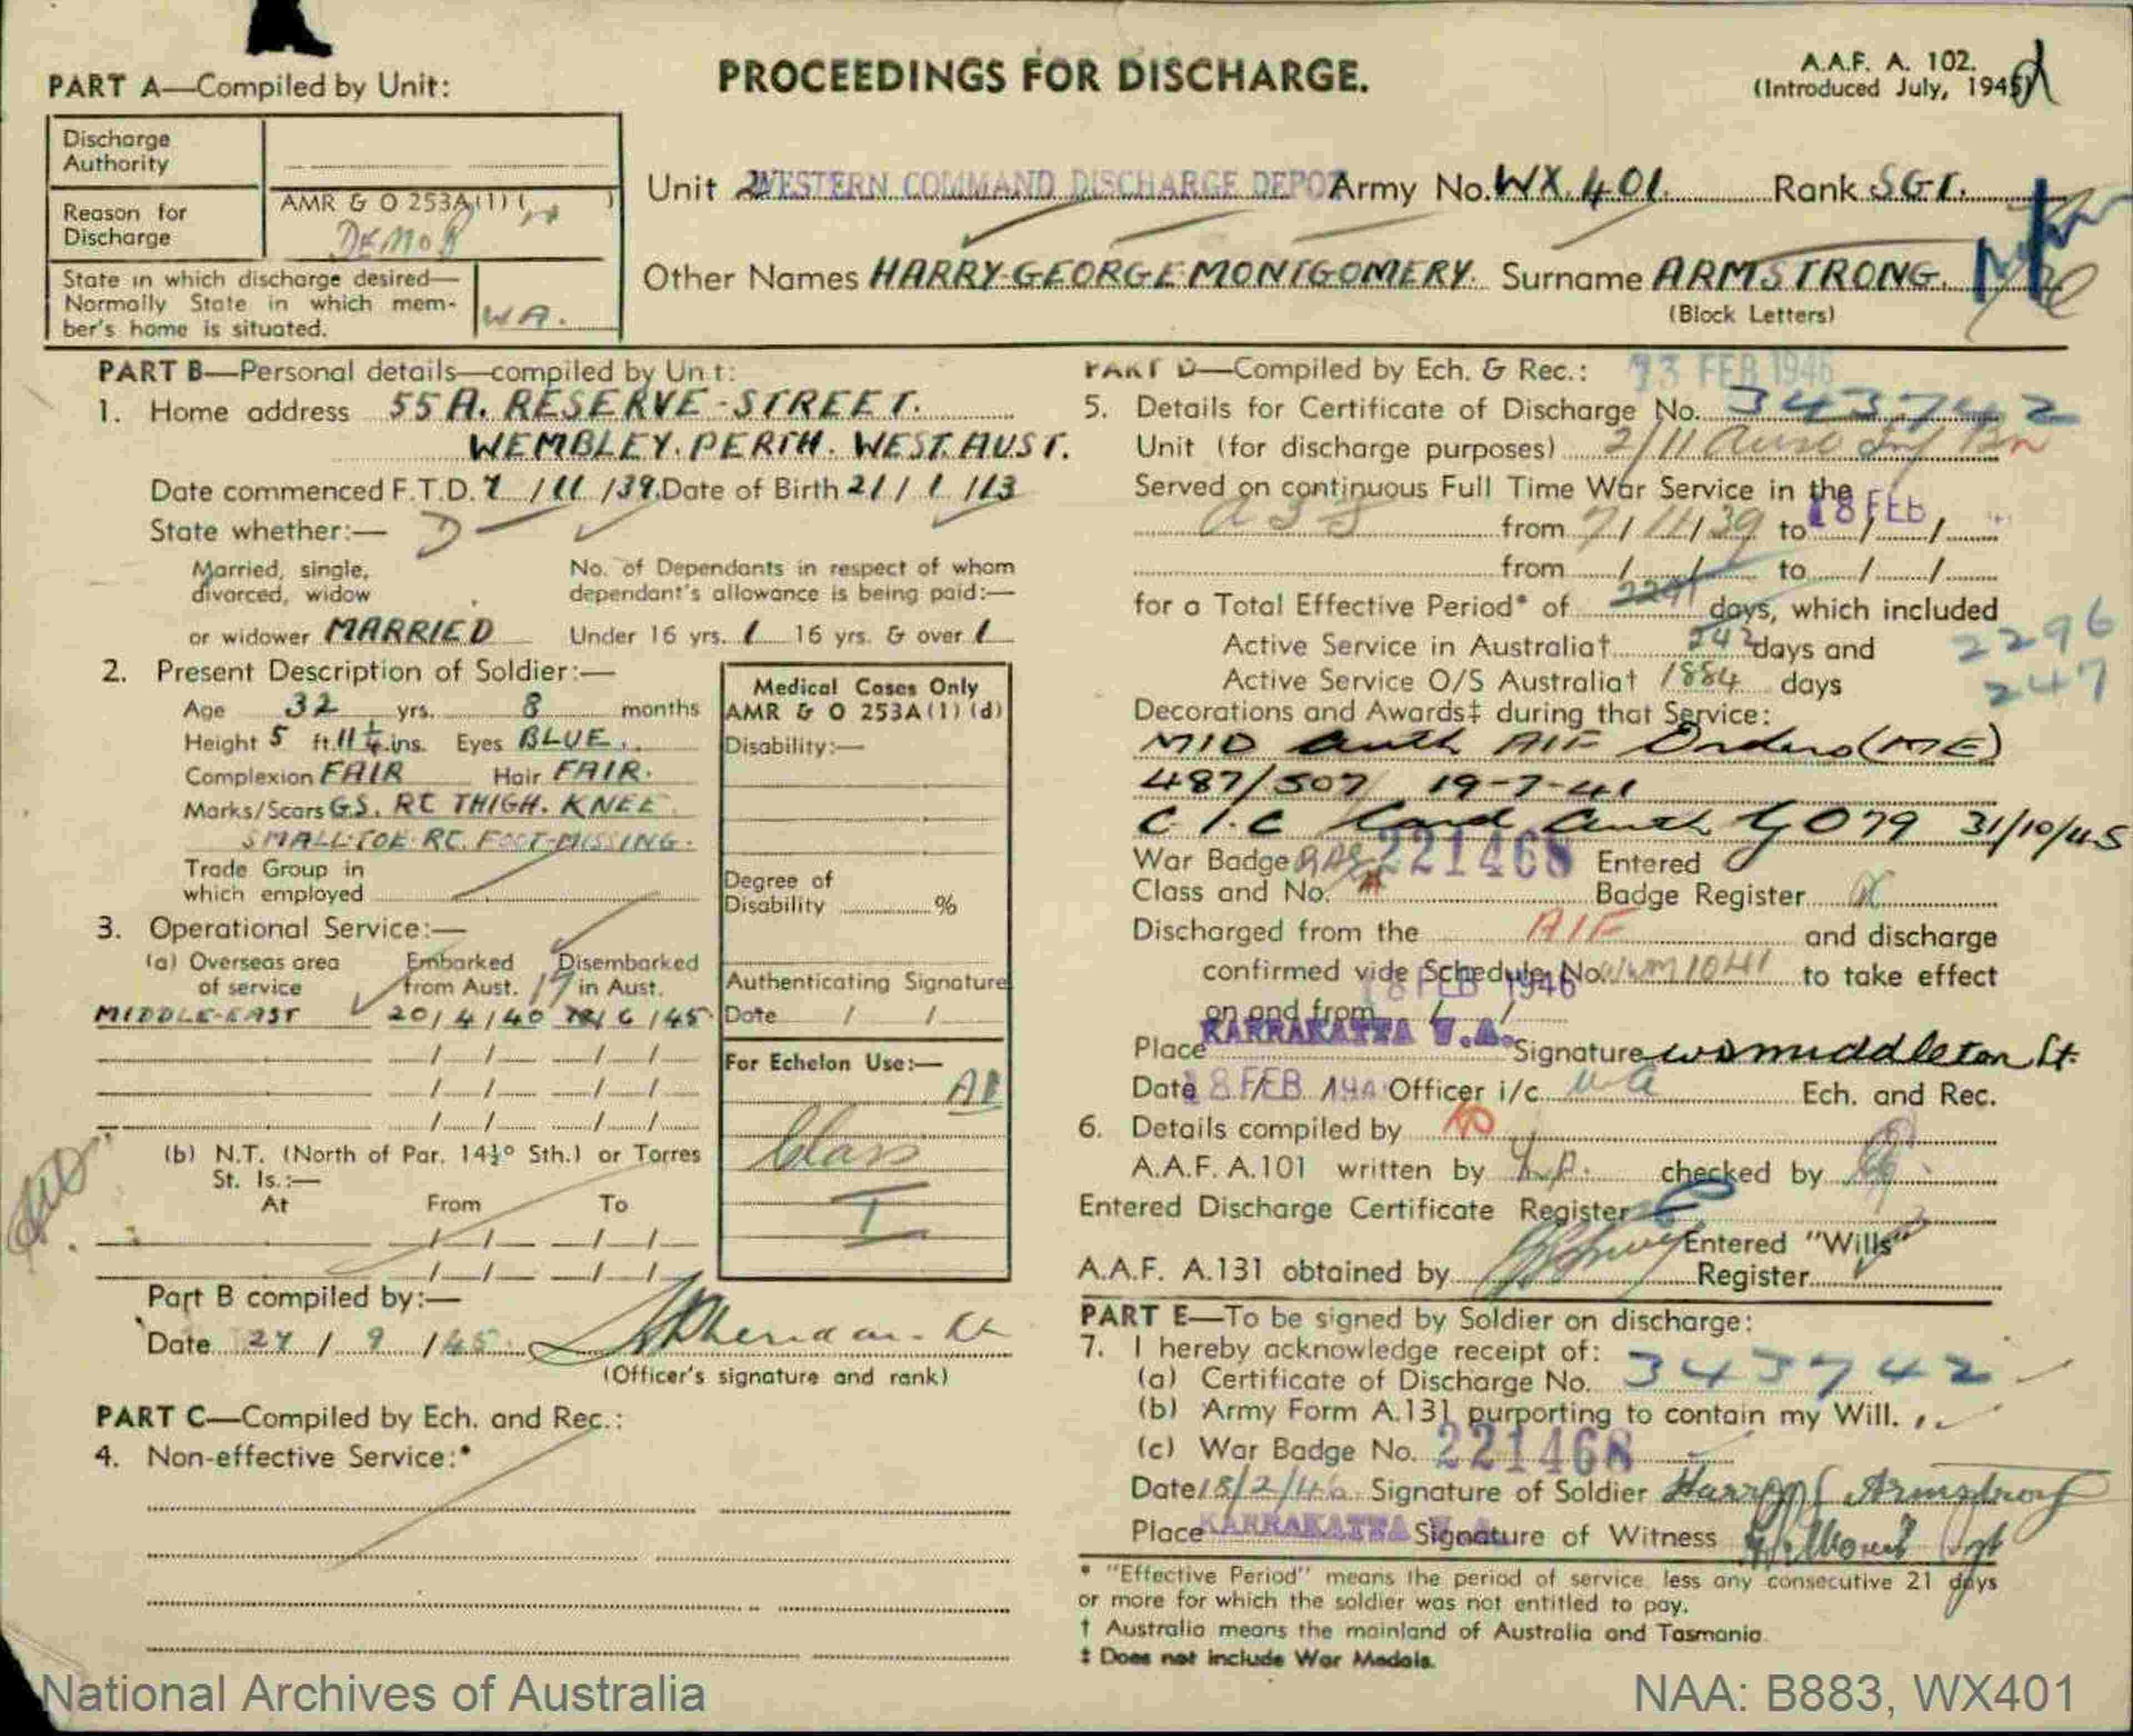 PROCEEDINGS FOR DISCHARGE.
A.A.F. A. 102.
(Introduced July, 1945)
PART A—Compiled by Unit:
Discharge
Authority
Reason for
Discharge
AMR & O 253A(1) ( )
DEMOB
State in which discharge desired—
Normally State in which mem-
ber's home is situated.
WA.
Unit WESTERN COMMAND DISCHARGE DEPOT Army No. WX.401. Rank SGT.
Other Names HARRY GEORGE MONTGOMERY. Surname ARMSTRONG.
(Block Letters)
PART B—Personal details—compiled by Unit:
1. Home address 55A. RESERVE-STREET.
WEMBLEY. PERTH. WEST. AUST.
Date commenced F.T.D. 7/11/39. Date of Birth 21/1/13
State whether:—
Married, single,
divorced, widow
or widower MARRIED
No. of Dependants in respect of whom
dependant's allowance is being paid:—
Under 16 yrs. 1 16 yrs. & over 1
2. Present Description of Soldier:—
Age 32 yrs. 8 months
Height 5 ft. 11¼ ins. Eyes BLUE.
Complexion FAIR Hair FAIR.
Marks/Scars G.S. RT THIGH. KNEE
SMALL TOE RT. FOOT MISSING.
Trade Group in
which employed
Medical Cases Only
AMR & O 253A(1)(d)
Disability:—
Degree of
Disability %
Authenticating Signature
Date / /
For Echelon Use:—
A1
Class
I
3. Operational Service:—
(a) Overseas area
of service
Embarked
from Aust.
Disembarked
in Aust.
MIDDLE-EAST 20/4/40 /6/45
(b) N.T. (North of Par. 14½° Sth.) or Torres
St. Is.:—
At From To
Part B compiled by:—
Date 27/9/45
(Officer's signature and rank)
PART C—Compiled by Ech. and Rec.:
4. Non-effective Service:*
PART D—Compiled by Ech. & Rec.: 13 FEB 1946
5. Details for Certificate of Discharge No. 343742
Unit (for discharge purposes) 2/11 Aust Inf Bn
Served on continuous Full Time War Service in the
from 7/11/39 to 18 FEB
from / / to / /
for a Total Effective Period* of days, which included
2296
Active Service in Australia† 242 days and
247
Active Service O/S Australia† 1884 days
Decorations and Awards‡ during that Service:
MID auth AIF Orders (ME)
487/507 19-7-41
C.I.C Card auth GO79 31/10/45
War Badge RAS 221468 Entered
Class and No. Badge Register
Discharged from the AIF and discharge
confirmed vide Schedule No. WM1041 to take effect
on and from 18 FEB 1946
Place KARRAKATTA W.A. Signature W D Middleton Lt.
Date 18 FEB 194 Officer i/c WA Ech. and Rec.
6. Details compiled by
A.A.F. A.101 written by checked by
Entered Discharge Certificate Register
Entered "Wills"
A.A.F. A.131 obtained by Register
PART E—To be signed by Soldier on discharge:
7. I hereby acknowledge receipt of:
(a) Certificate of Discharge No. 343742
(b) Army Form A.131 purporting to contain my Will.
(c) War Badge No. 221468
Date 18/2/46 Signature of Soldier Harry Armstrong
Place KARRAKATTA W.A. Signature of Witness Sgt
* "Effective Period" means the period of service less any consecutive 21 days
or more for which the soldier was not entitled to pay.
† Australia means the mainland of Australia and Tasmania.
‡ Does not include War Medals.
National Archives of Australia
NAA: B883, WX401